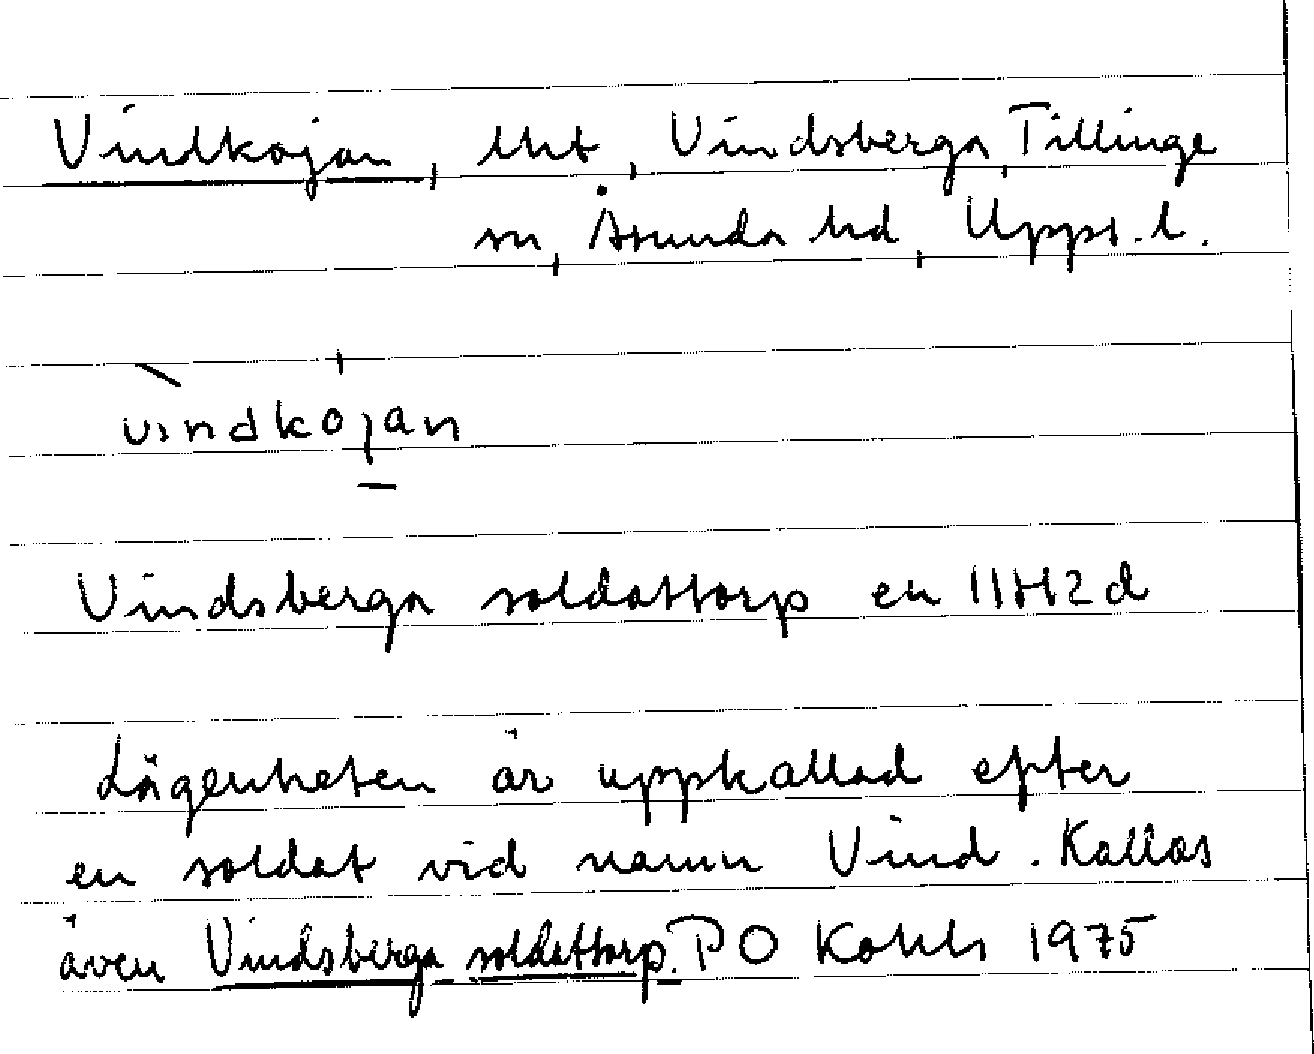 Vindkojan, lht, Vindsberga, Tillinge
sn, Åsunda hd, Upps. l.
vìndkojan
Vindsberga soldattorp ek 11H2d
Lägenheten är uppkallad efter
en soldat vid namn Vind. Kallas
även Vindsberga soldattorp. PO 1975